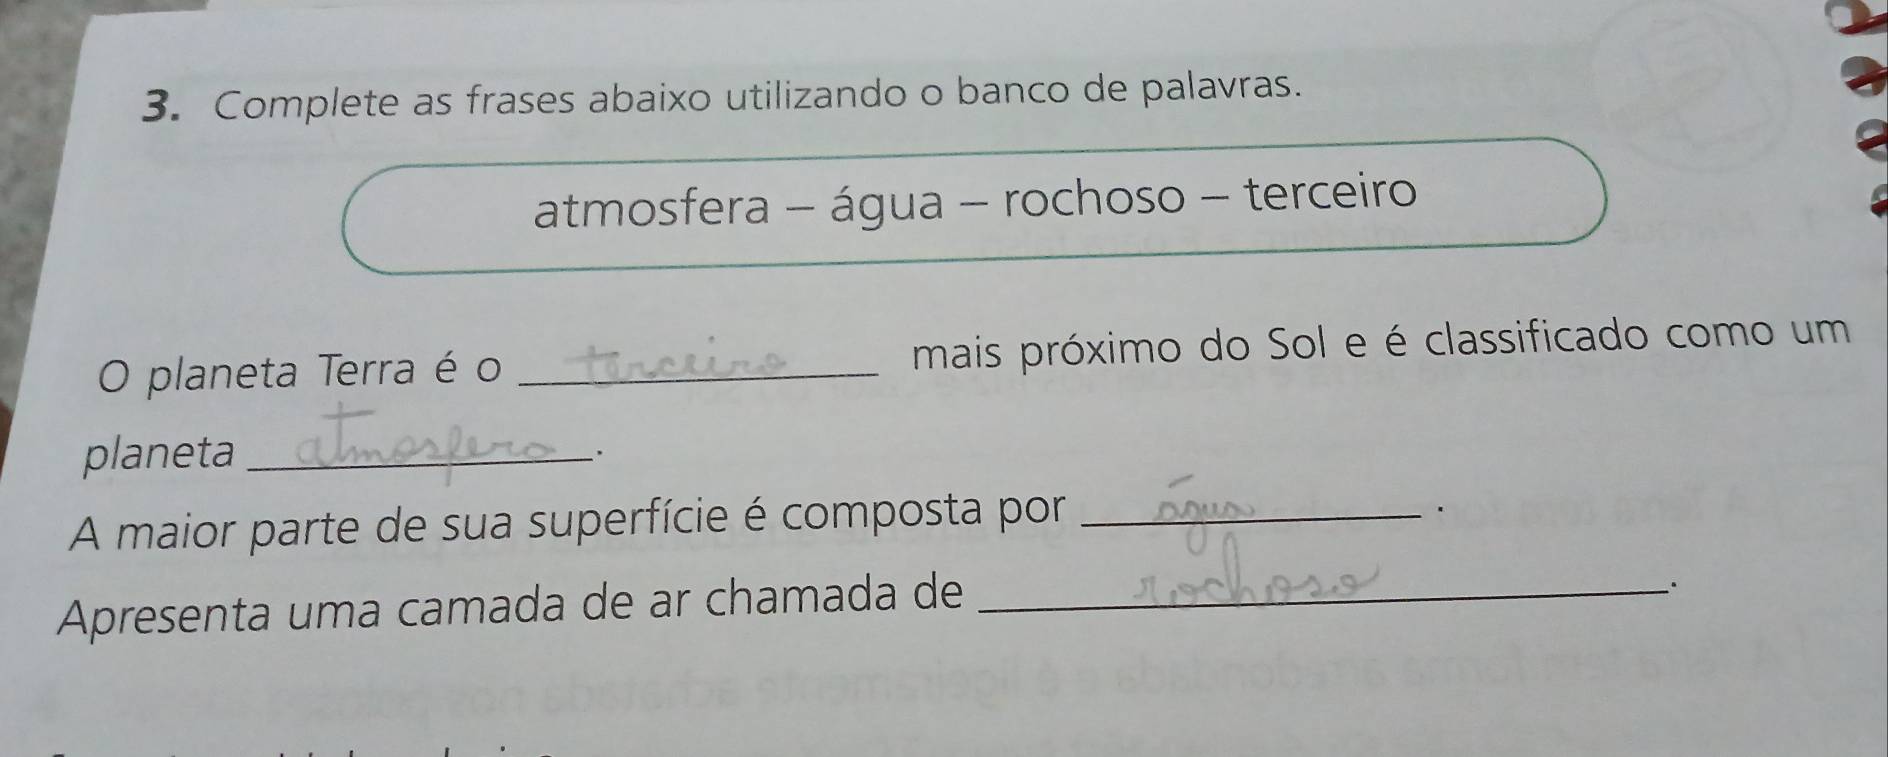 3. Complete as frases abaixo utilizando o banco de palavras.
atmosfera – água – rochoso – terceiro
O planeta Terra é o terceiro mais próximo do Sol e é classificado como um
planeta atmosfera.
A maior parte de sua superfície é composta por água.
Apresenta uma camada de ar chamada de rochoso.